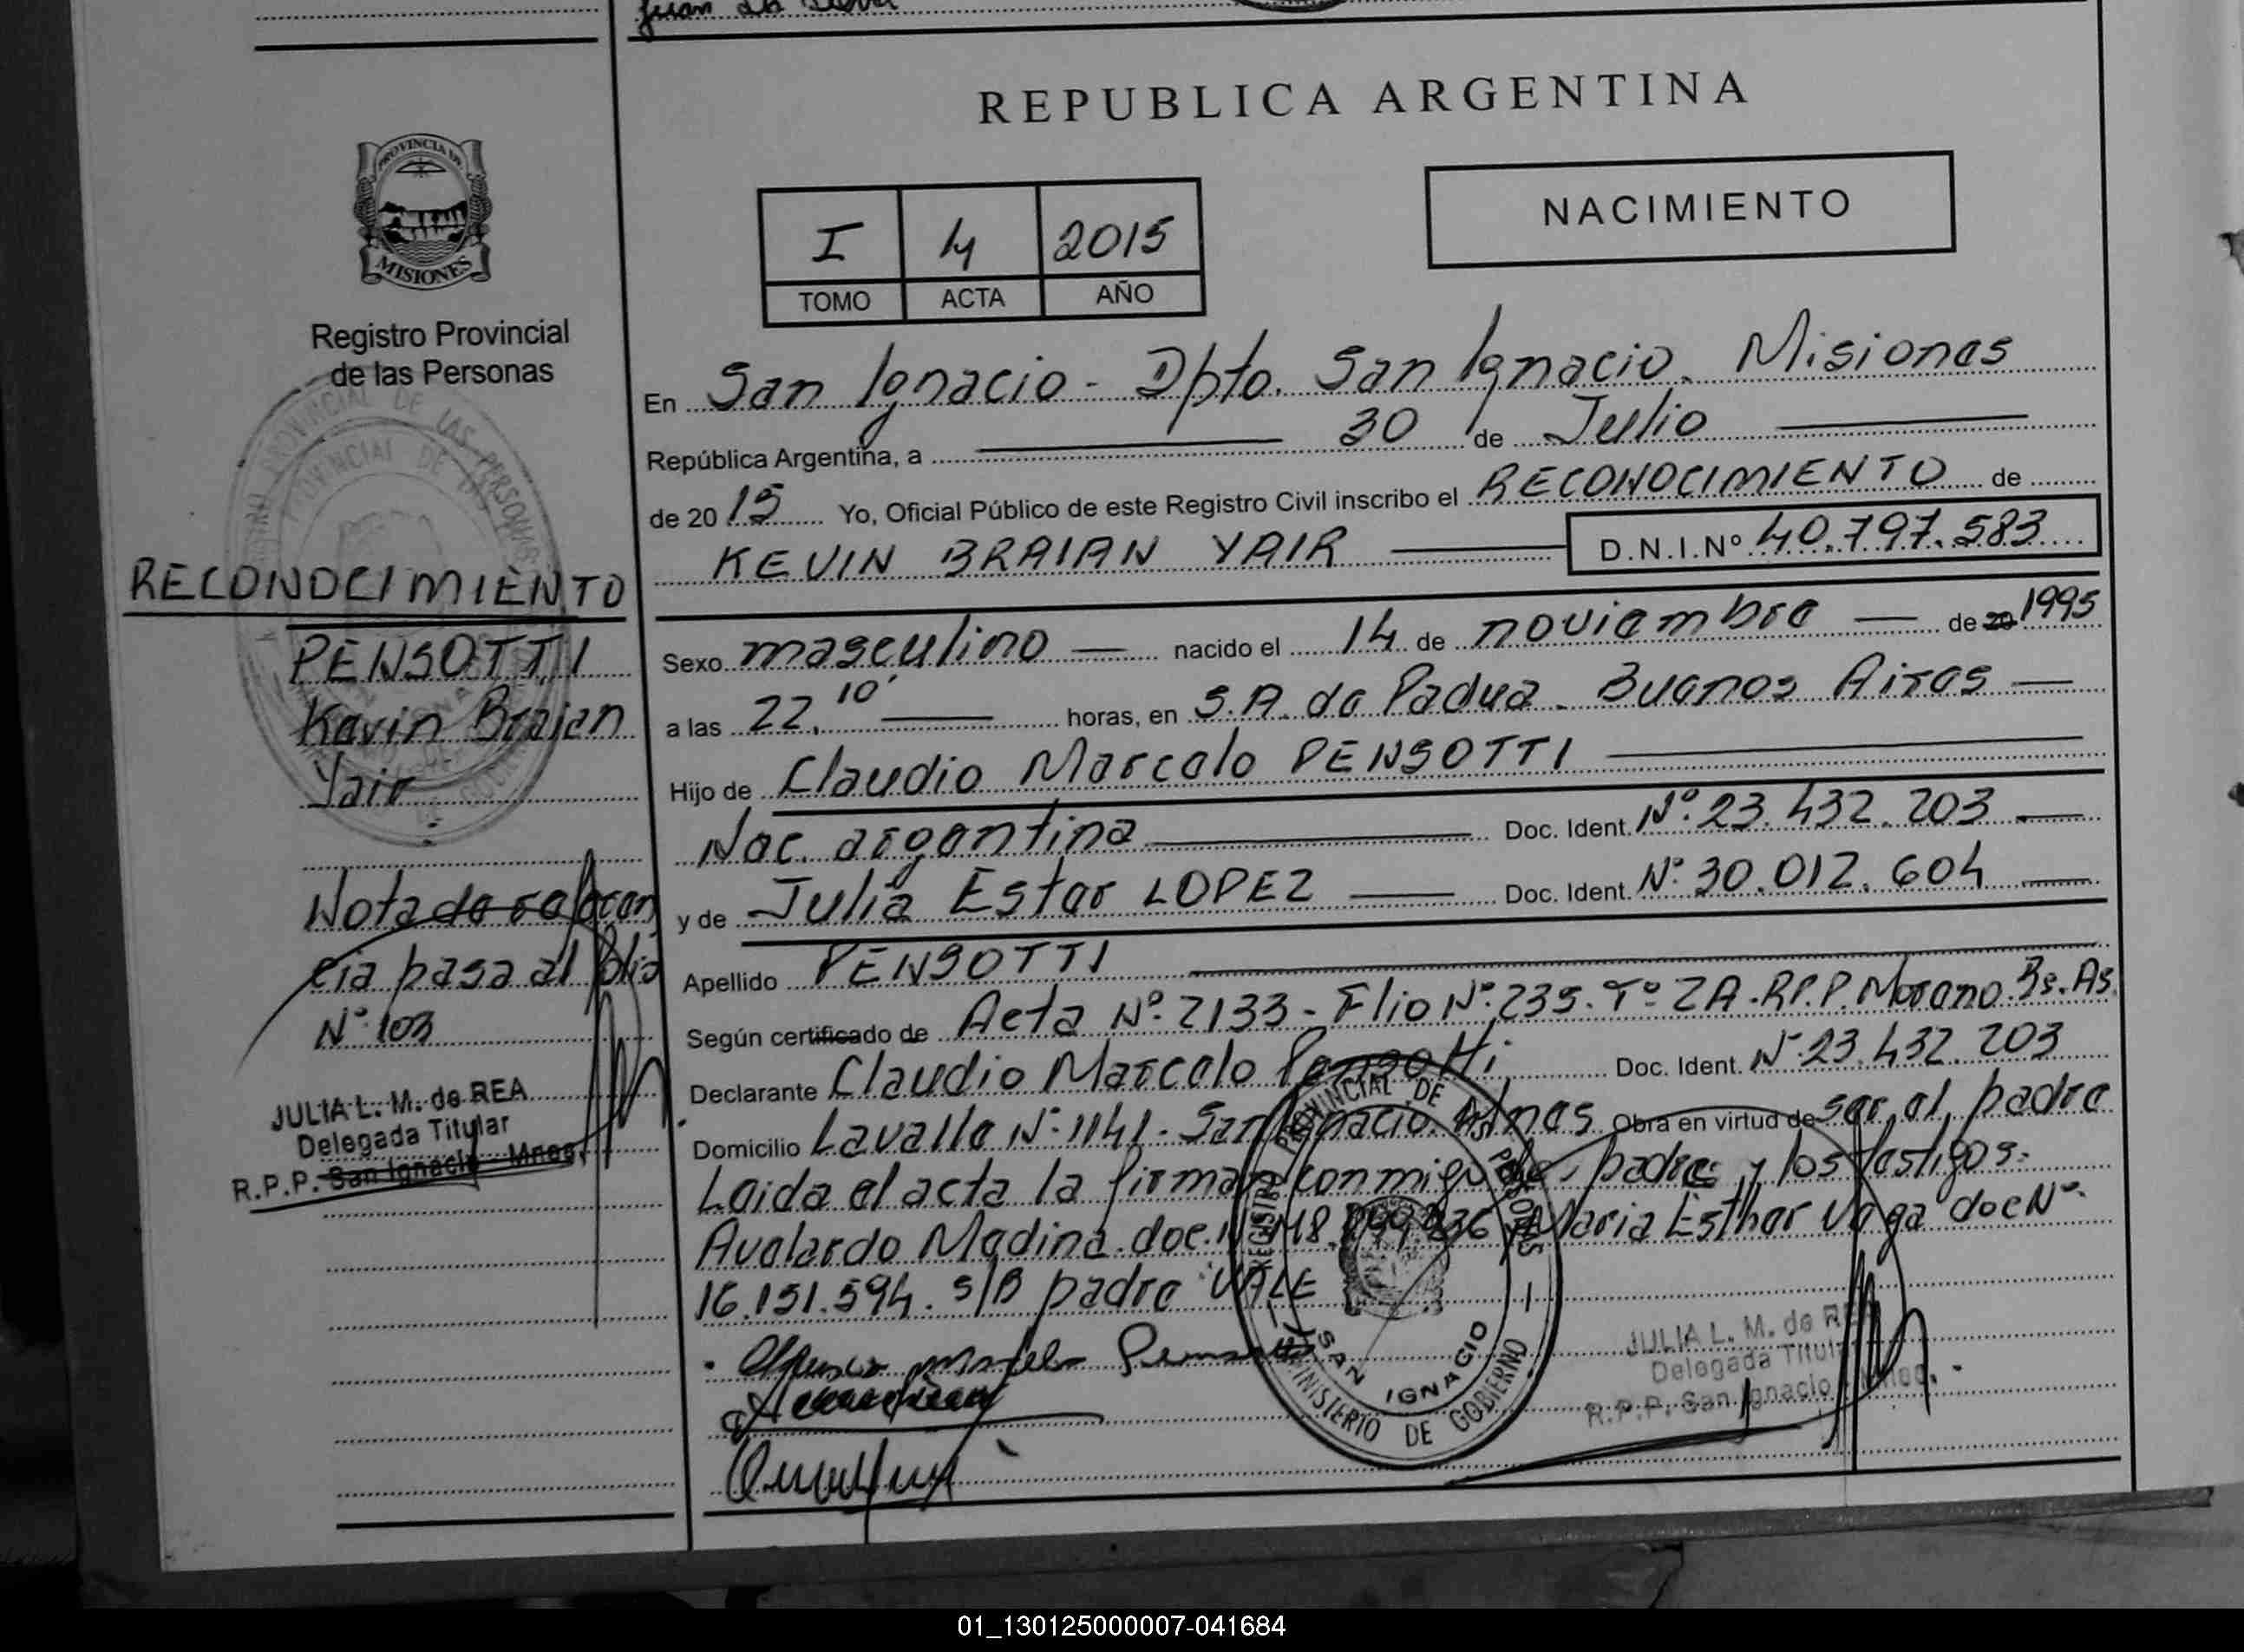 Juan
REPUBLICA ARGENTINA
PROVINCIA DE
MISIONES
Registro Provincial
de las Personas
I 4 2015
TOMO ACTA AÑO
NACIMIENTO
En San Ignacio - Dpto. San Ignacio. Misiones
República Argentina, a 30 de Julio
de 2015 Yo, Oficial Público de este Registro Civil inscribo el RECONOCIMIENTO de
KEVIN BRAIAN YAIR D.N.I.Nº 40.797.583
Sexo masculino nacido el 14 de noviembre de 20 1995
a las 22.10' horas, en S.A. de Padua. Buenos Aires
Hijo de Claudio Marcelo PENSOTTI
Nac. argentina Doc. Ident. Nº 23.432.203
y de Julia Ester LOPEZ Doc. Ident. Nº 30.012.604
Apellido PENSOTTI
Según certificado de Acta Nº 2133 - Flio Nº 235. Tº 2A. R.P.P. Moreno. Bs. As.
Declarante Claudio Marcelo Pensotti Doc. Ident. Nº 23.432.203
Domicilio Lavalle Nº 1141 - San Ignacio. Mnes Obra en virtud de ser el padre
Leida el acta la firman conmigo padre y los testigos.
Avelardo Medina. doc. Nº María Esther Vega doc Nº
16.151.594. s/B padre VALE
RECONOCIMIENTO
PENSOTTI
Kevin Braian
Yair
Nota de referen
cia pasa al folio
Nº 103
JULIA L. M. de REA
Delegada Titular
R.P.P. San Ignacio - Mnes.
REGISTRO PROVINCIAL DE LAS PERSONAS
SAN IGNACIO
MINISTERIO DE GOBIERNO
JULIA L. M. de REA
Delegada Titular
R.P.P. San Ignacio - Mnes.
01_130125000007-041684